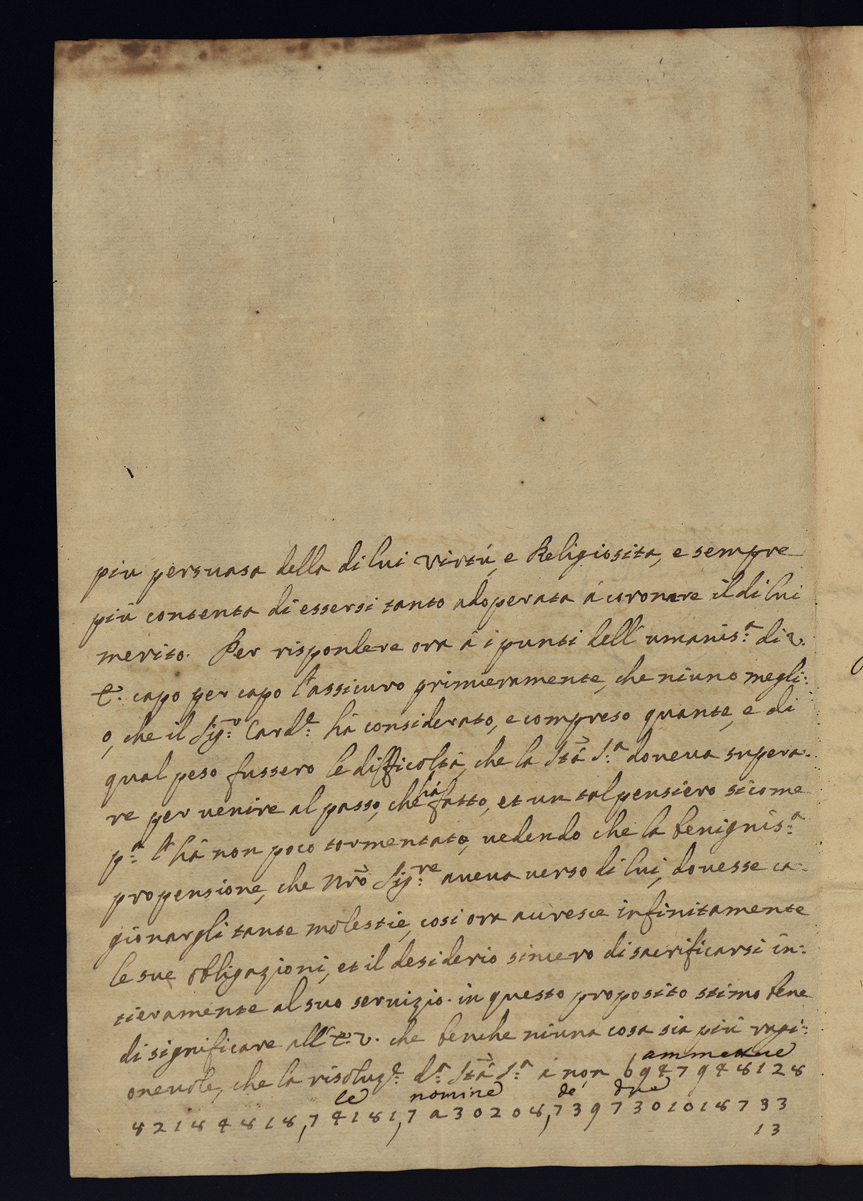 più persuasa della di lui virtù, e Religiosità, e sempre
più contenta di essersi tanto adoperata à coronare il di lui
merito. Per rispondere ora à i punti dell'umanis.ª di V.
E. capo per capo l'assicuro primieramente, che niuno megli:
o, che il Sig.r Card.e hà considerato, e compreso quante, e di
qual peso fussero le difficoltà, che la Stà S.ª doveva supera-
re per venire al passo, che hà fatto, et un tal pensiero sicome
p.ª l'hà non poco tormentato, vedendo che la benignis.ª
propensione, che Nrõ Sig.re aveva verso di lui, dovesse ca-
gionargli tante molestie, così ora accresce infinitamente
le sue obligazioni, et il desiderio sincero di sacrificarsi in:
tieramente al suo servizio. in questo proposito stimo bene
di significare all'E. V. che benche niuna cosa sia più ragi:
ammettere
onevole, che la risoluz.e d.ª Stà S.ª i non 6 9 4 7 9 4 8 1 2 8
le nomine de due
8 2 1 8 4 8 1 8, 7 4 1 8 1, 7 a 3 0 2 0 8, 7 3 9 7 3 0 1 0 1 8 7 3 3
1 3